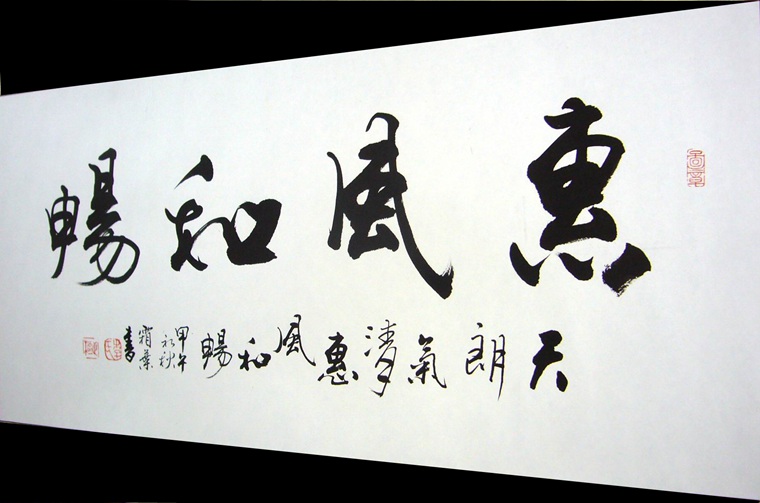 惠風和暢
天朗氣清惠風和暢
甲午初秋
霜葉
書